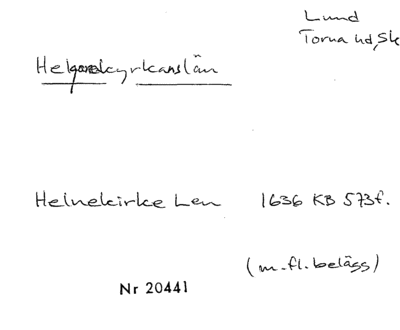 Lund
Torna hd, Sk
Helgonakyrkanslän
Helnekirke Len 1636 KB 573f.
(m.fl. belägg)
Nr 20441